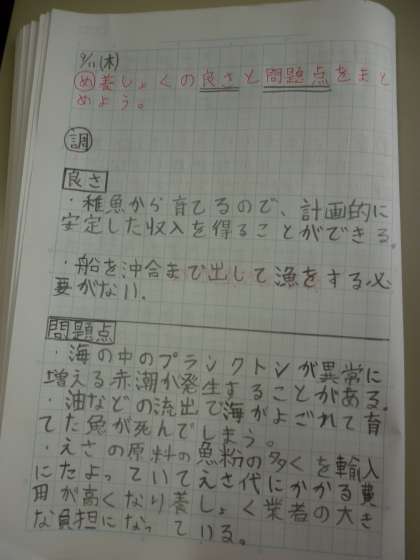 9/11(木)
め養しょくの良さと問題点をまと
めよう。
調
良さ
・稚魚から育てるので、計画的に
安定した収入を得ることができる。
・船を沖合まで出して漁をする必
要がない。
問題点
・海の中のプランクトンが異常に
増える赤潮が発生することがある。
・油などの流出で海がよごれて育
てた魚が死んでしまう。
・えさの原料の魚粉の多くを輸入
にたよっていてえさ代にかかる費
用が高くなり養しょく業者の大き
な負担になっている。